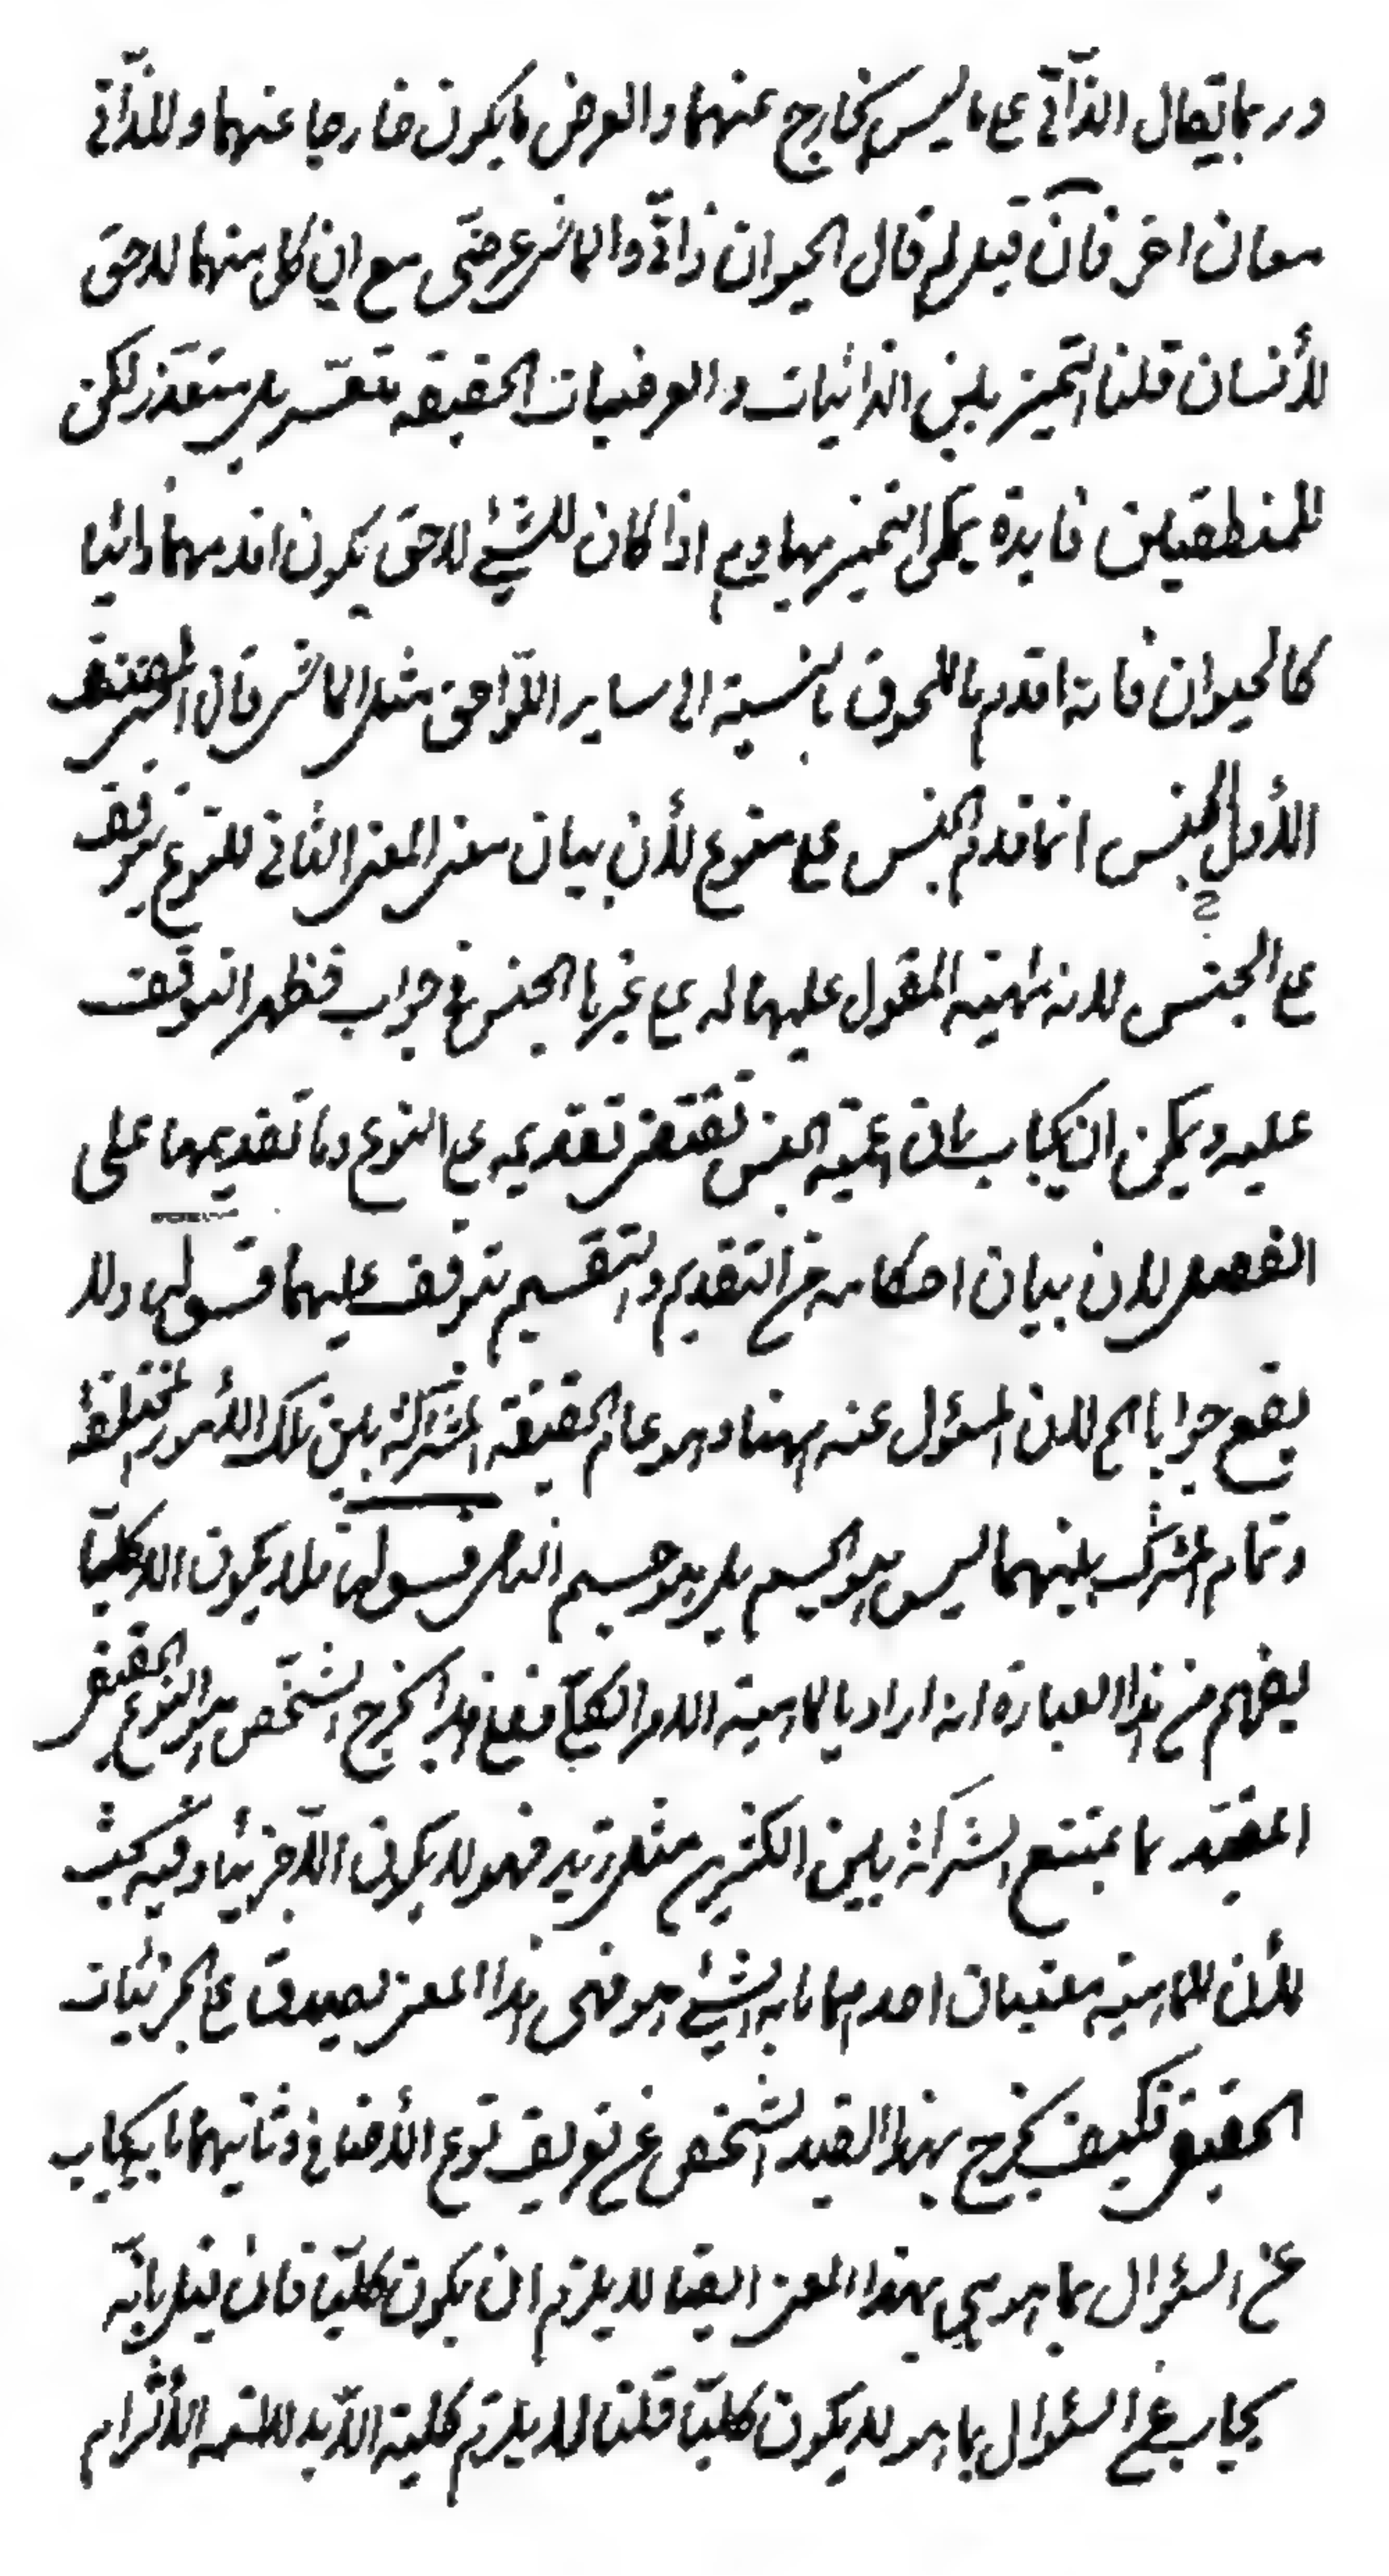 وربما يقال الذّاتّي على ما ليس بخارج عنهما والعرض ما يكون خارجا عنهما وللذّاتي
معان اخر فان قيل لم قال الحيوان ذاتيّ والماشي عرضىّ مع ان كل منهما لاحق
للأنسان قلنا التميز بين الذاتيات والعرضيات الحقيقه متعسّر بل متعذر لكن
للمنطقيين فايدة يمكن التميز بها وهى اذا كان للشيئ لاحق يكون اقدمهما ذاتيا
كالحيوان فانه اقدم باللحوق بالنسبة الى ساير اللّواحق مثل الماشى قال المصنف
الأول الجنس انما قدم الجنس على نوع لأن بيان معنى المعنى الثانى للنوع يتوقف
على الجنس لانه ماهيته المقول عليها له على غيرها الجنس فى جواب فظهر التوقف
عليه ويمكن ان يجاب بان اعميّة الجنس تقتضى تقديمه على النوع وما تقديمها على
الفصل لان بيان احكامه من التقديم والتقسيم يتوقف عليهما قسولى ولا
يقع جوابا الخ لان المسؤل عنه ههنا وهو عام الحقيقة المشتركة بين تلك الأمور المختلفة
وتمام المشترك بينهما ليس هو الجسم بل هو جسم النامى قسوله فلا يكون الا كليّا
يفهم من هذا العبارة انه اراد بالماهية الامر الكليّ فعلى هذا يخرج الشّخص هو النوع الحقيقى
المقيّد بما يمتنع الشركة بين الكثيرين مثل زيد فهو لا يكون الاّ جزئيا وفيه بحث
لأن للماهية معنيان احدهما ما به الشيئ هو فهى بهذا المعنى يصدق على الجزئيات
الحقيقى فكيف يخرج بهذا القيد الشخص عن تعريف نوع الأضافى وثانيهما ما يجاب
عن السؤال بما هو هى بهذا المعنى ايضا لا يلزم ان يكون كليّا فان قيل بانّه
يجاب عن السئوال بما هو لا يكون كليّا قلنا لا يلزم كلية